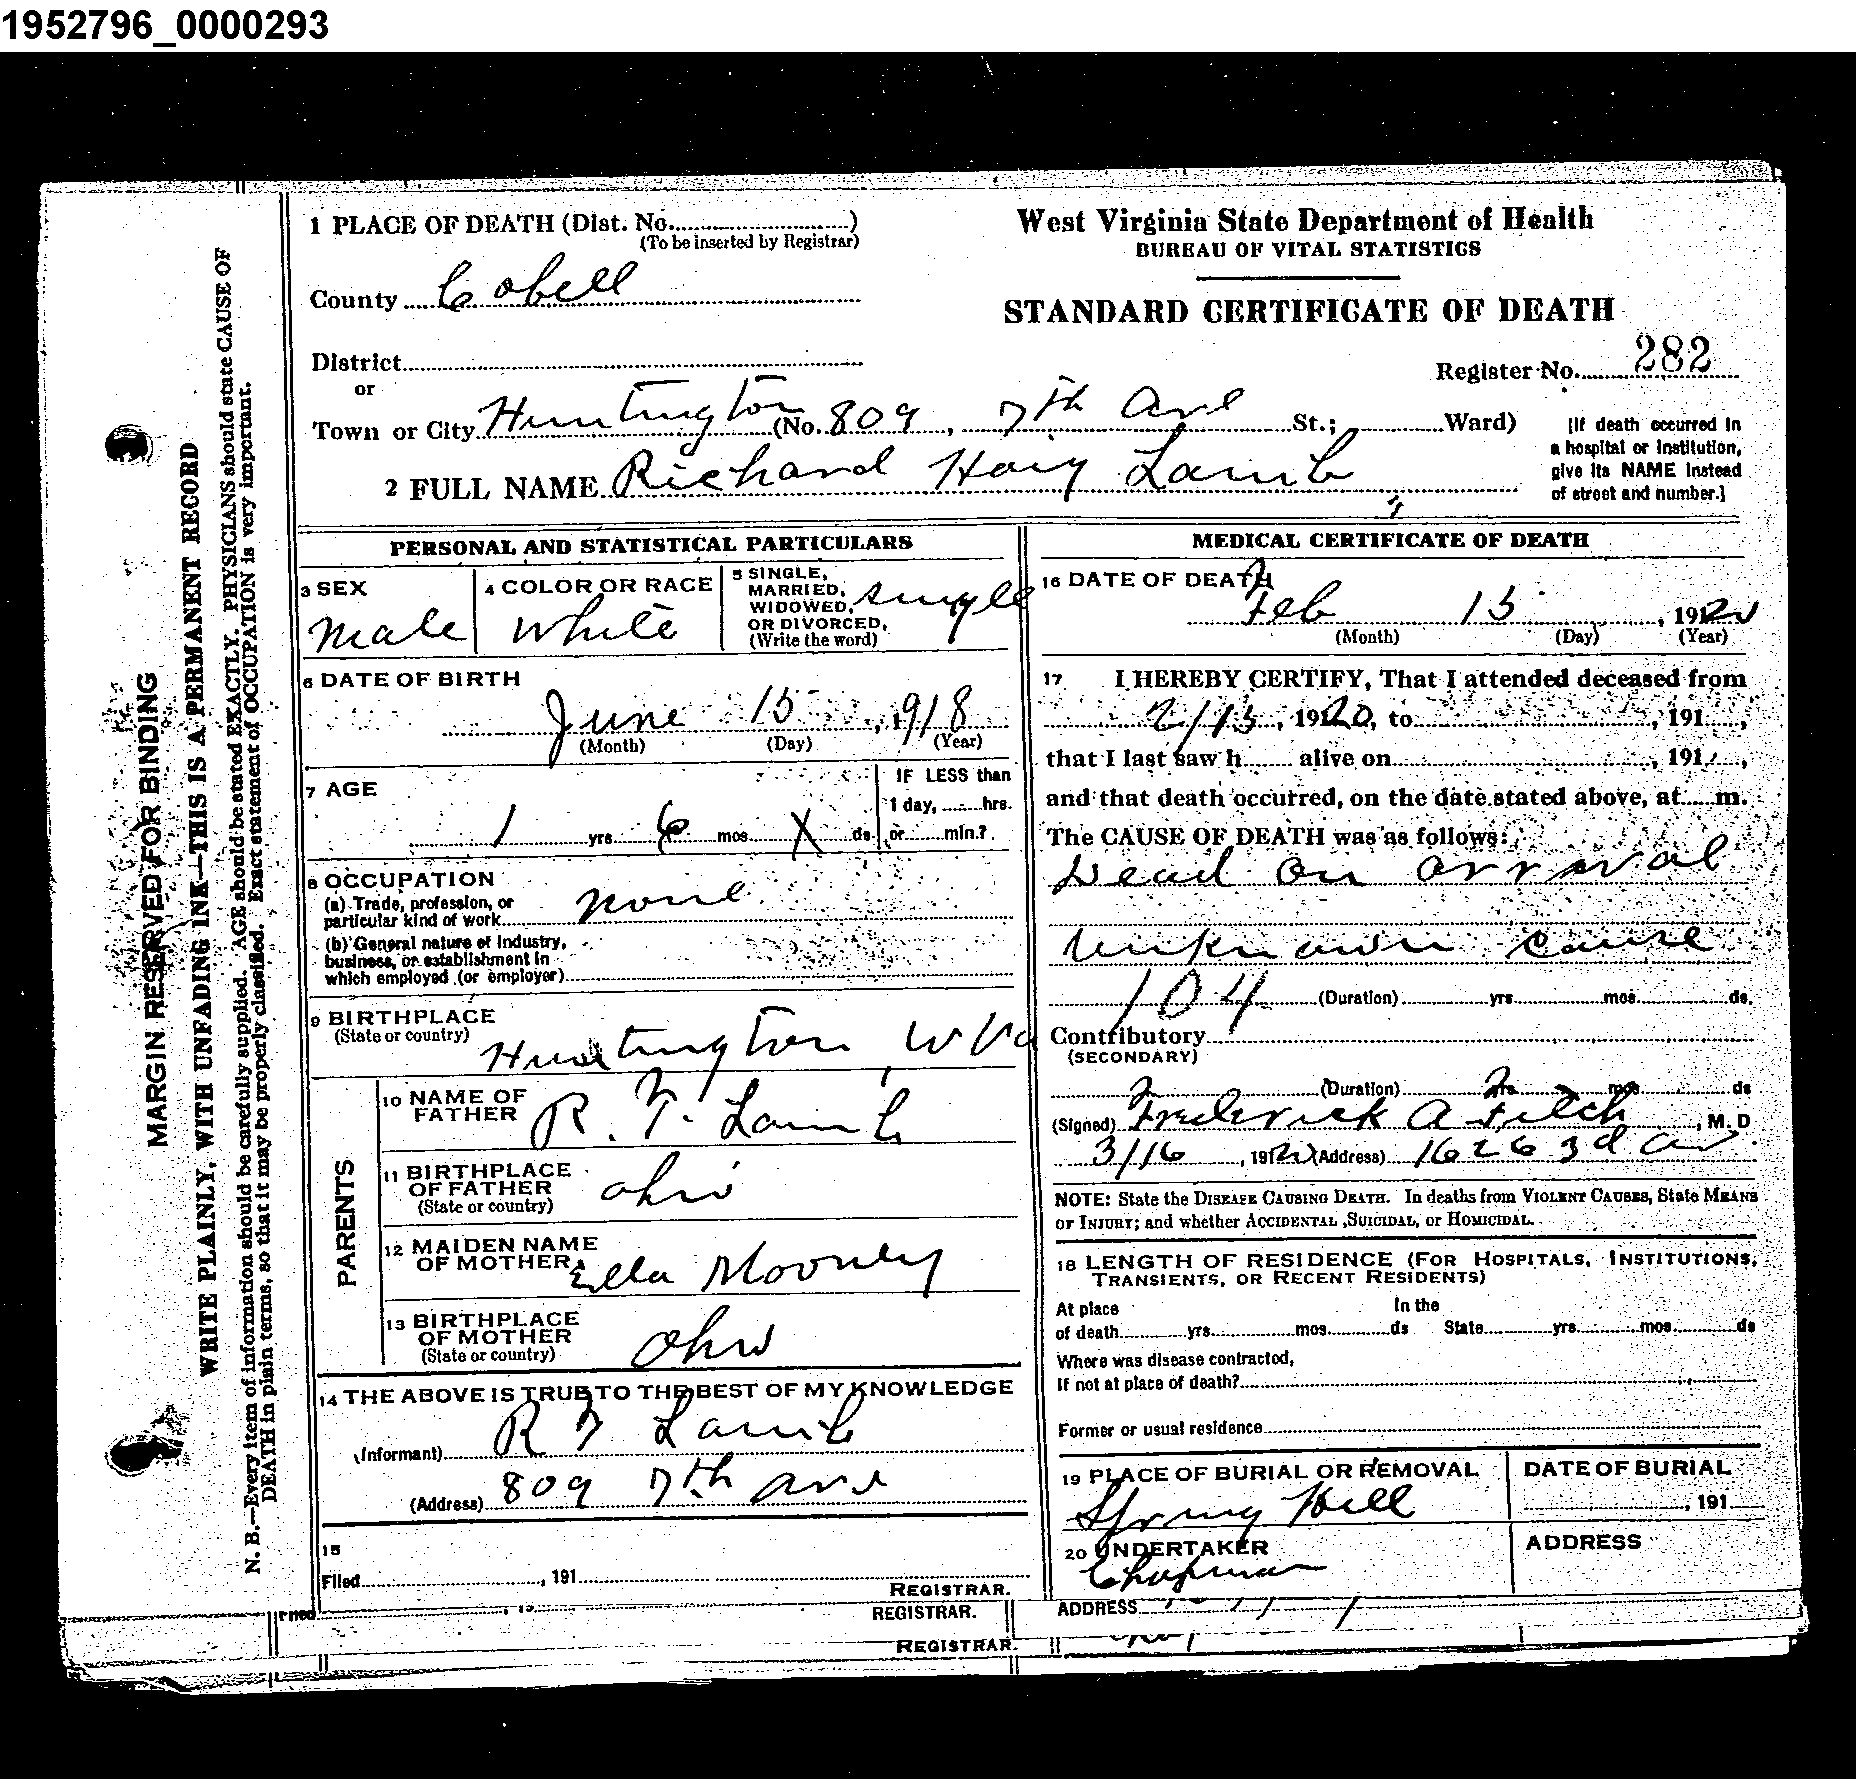 1952796_0000293
1 PLACE OF DEATH (Dist. No..............)
(To be inserted by Registrar)
County Cabell
District
or
Town or City Huntington (No. 809, 7th Ave St.; Ward)
2 FULL NAME Richard Lamb
West Virginia State Department of Health
BUREAU OF VITAL STATISTICS
STANDARD CERTIFICATE OF DEATH
Register No. 282
[If death occurred in
a hospital or institution,
give its NAME instead
of street and number.]
MARGIN RESERVED FOR BINDING
WRITE PLAINLY, WITH UNFADING INK—THIS IS A PERMANENT RECORD
N. B.—Every item of information should be carefully supplied. AGE should be stated EXACTLY. PHYSICIANS should state CAUSE OF
DEATH in plain terms, so that it may be properly classified. Exact statement of OCCUPATION is very important.
PERSONAL AND STATISTICAL PARTICULARS
3 SEX
male
4 COLOR OR RACE
White
5 SINGLE,
MARRIED,
WIDOWED,
OR DIVORCED,
(Write the word)
single
6 DATE OF BIRTH
June 15, 1918
(Month) (Day) (Year)
7 AGE
1 yrs. 6 mos. X ds.
IF LESS than
1 day, ......hrs.
or ......min.?
8 OCCUPATION
(a) Trade, profession, or
particular kind of work none
(b) General nature of industry,
business, or establishment in
which employed (or employer)
9 BIRTHPLACE
(State or country)
Huntington, W Va
PARENTS
10 NAME OF
FATHER R. F. Lamb
11 BIRTHPLACE
OF FATHER
(State or country) Ohio
12 MAIDEN NAME
OF MOTHER Ella Mooney
13 BIRTHPLACE
OF MOTHER
(State or country) Ohio
14 THE ABOVE IS TRUE TO THE BEST OF MY KNOWLEDGE
(Informant) R F Lamb
(Address) 809 7th Ave
15
Filed, 191
REGISTRAR.
MEDICAL CERTIFICATE OF DEATH
16 DATE OF DEATH
Feb 15, 1920
(Month) (Day) (Year)
17 I HEREBY CERTIFY, That I attended deceased from
2/15, 1920, to, 191,
that I last saw h alive on, 191,
and that death occurred, on the date stated above, at m.
The CAUSE OF DEATH was as follows:
Dead on arrival
Unknown cause
104 (Duration) yrs. mos. ds.
Contributory
(SECONDARY)
(Duration) yrs. mos. ds
(Signed) Frederick A Fitch, M. D
3/16, 1920 (Address) 1626 3d Av
NOTE: State the DISEASE CAUSING DEATH. In deaths from VIOLENT CAUSES, State MEANS
OF INJURY; and whether ACCIDENTAL, SUICIDAL, or HOMICIDAL.
18 LENGTH OF RESIDENCE (FOR HOSPITALS, INSTITUTIONS,
TRANSIENTS, OR RECENT RESIDENTS)
At place In the
of death yrs. mos. ds State yrs. mos. ds
Where was disease contracted,
If not at place of death?
Former or usual residence
19 PLACE OF BURIAL OR REMOVAL
Spring Hill
DATE OF BURIAL
, 191
20 UNDERTAKER
Chapman
ADDRESS
REGISTRAR.
ADDRESS
REGISTRAR.